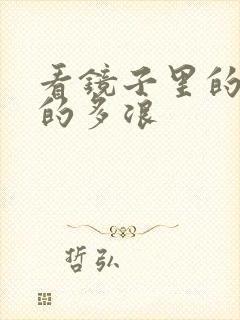 看镜子里的
的多浪
哲弘